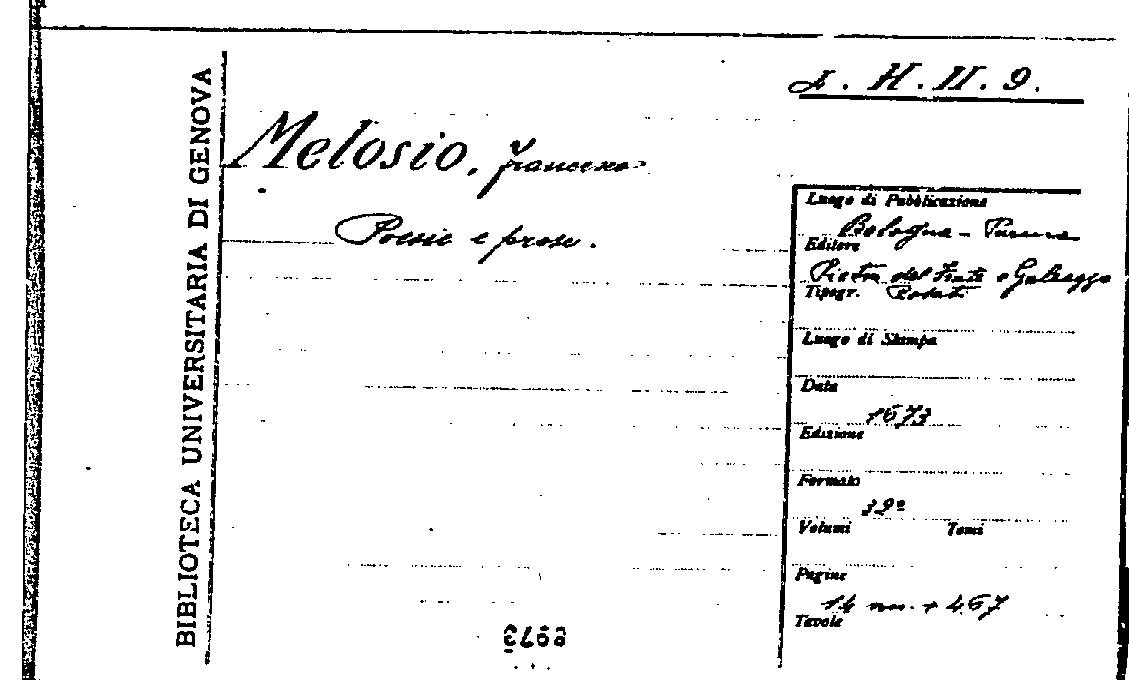 BIBLIOTECA UNIVERSITARIA DI GENOVA
H. II. 9.
Melosio, Francesco
Poesie e prose.
Luogo di Pubblicazione
Bologna - Parma
Editore
e Galeazzo
Tipogr. Rosati
Luogo di Stampa
Data
1673
Edizione
Formato
Volumi Tomi
Pagine
14 nn. + 467
Tavole